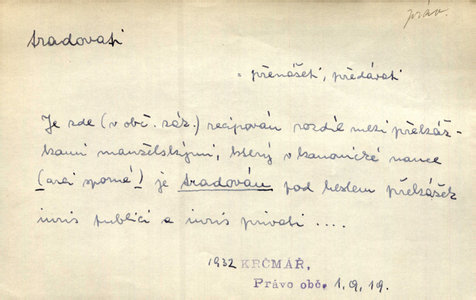 práv.
tradovati
= přenášeti, předávati
Je zde (v obč. zák.) recipován rozdíl mezi překáž-
kami manželskými, který v kanonické nauce
(arci sporné) je tradován pod heslem překážek
iuris publici a iuris privati ....
1932 KRČMÁŘ,
Právo obč. 1.9.19.